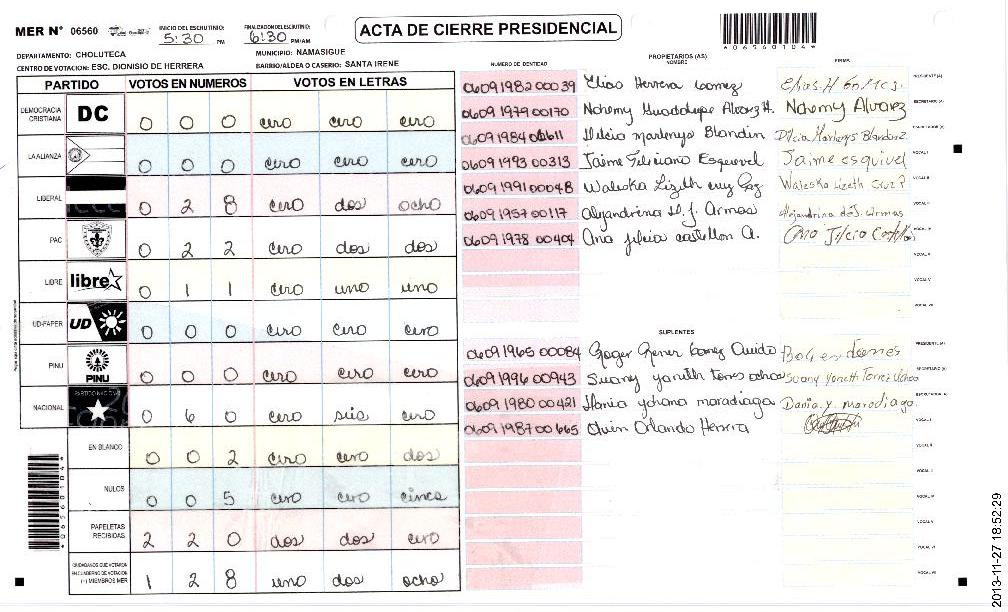 MER N° 06560
INICIO DEL ESCRUTINIO: 5:30 PM
FINALIZACION DEL ESCRUTINIO: 6:30 PM/AM
ACTA DE CIERRE PRESIDENCIAL
*06560104*
DEPARTAMENTO: CHOLUTECA
MUNICIPIO: NAMASIGUE
CENTRO DE VOTACION: ESC. DIONISIO DE HERRERA
BARRIO/ALDEA O CASERIO: SANTA IRENE
PARTIDO VOTOS EN NUMEROS VOTOS EN LETRAS
DEMOCRACIA CRISTIANA DC 0 0 0 cero cero cero
LA ALIANZA 0 0 0 cero cero cero
LIBERAL 0 2 8 cero dos ocho
PAC 0 2 2 cero dos dos
LIBRE libre 0 1 1 cero uno uno
UD-FAPER UD 0 0 0 cero cero cero
PINU PINU 0 0 0 cero cero cero
NACIONAL PARTIDO NACIONAL 0 6 0 cero seis cero
EN BLANCO 0 0 2 cero cero dos
NULOS 0 0 5 cero cero cinco
PAPELETAS RECIBIDAS 2 2 0 dos dos cero
CIUDADANOS QUE VOTARON EN CUADERNO DE VOTACION (+) MIEMBROS MER 1 2 8 uno dos ocho
*06560104*
NUMERO DE IDENTIDAD PROPIETARIOS (AS) NOMBRE FIRMA
0609 1982 00039 Elias Herrera Gomez PRESIDENTE (A)
0609 1979 00170 Nohemy Guadalupe Alvarez H. Nohemy Alvarez SECRETARIO (A)
0609 1984 Dilcia Marlenys Blandin Dilcia Marlenys Blandin
0609 1993 00313 Jaime Feliciano Esquevel Jaime esquivel VOCAL I
0609 1991 00048 Waleska Lizeth Waleska Lizeth Cruz VOCAL II
0609 1957 00117 Alejandrina d. j. Armas Alejandrina de J. Armas
0609 1978 00404 Ana Julcia castellon A.
VOCAL V
SUPLENTES
0609 1965 00084 PRESIDENTE (A)
0609 1996 00943 Suany yaneth torres ochoa Suany Yaneth Torres Ochoa SECRETARIO (A)
0609 1980 00421 yohana maradiaga Dania y. maradiaga
0609 1987 00665 Orlando Herrera VOCAL I
VOCAL II
2013-11-27 18:52:29